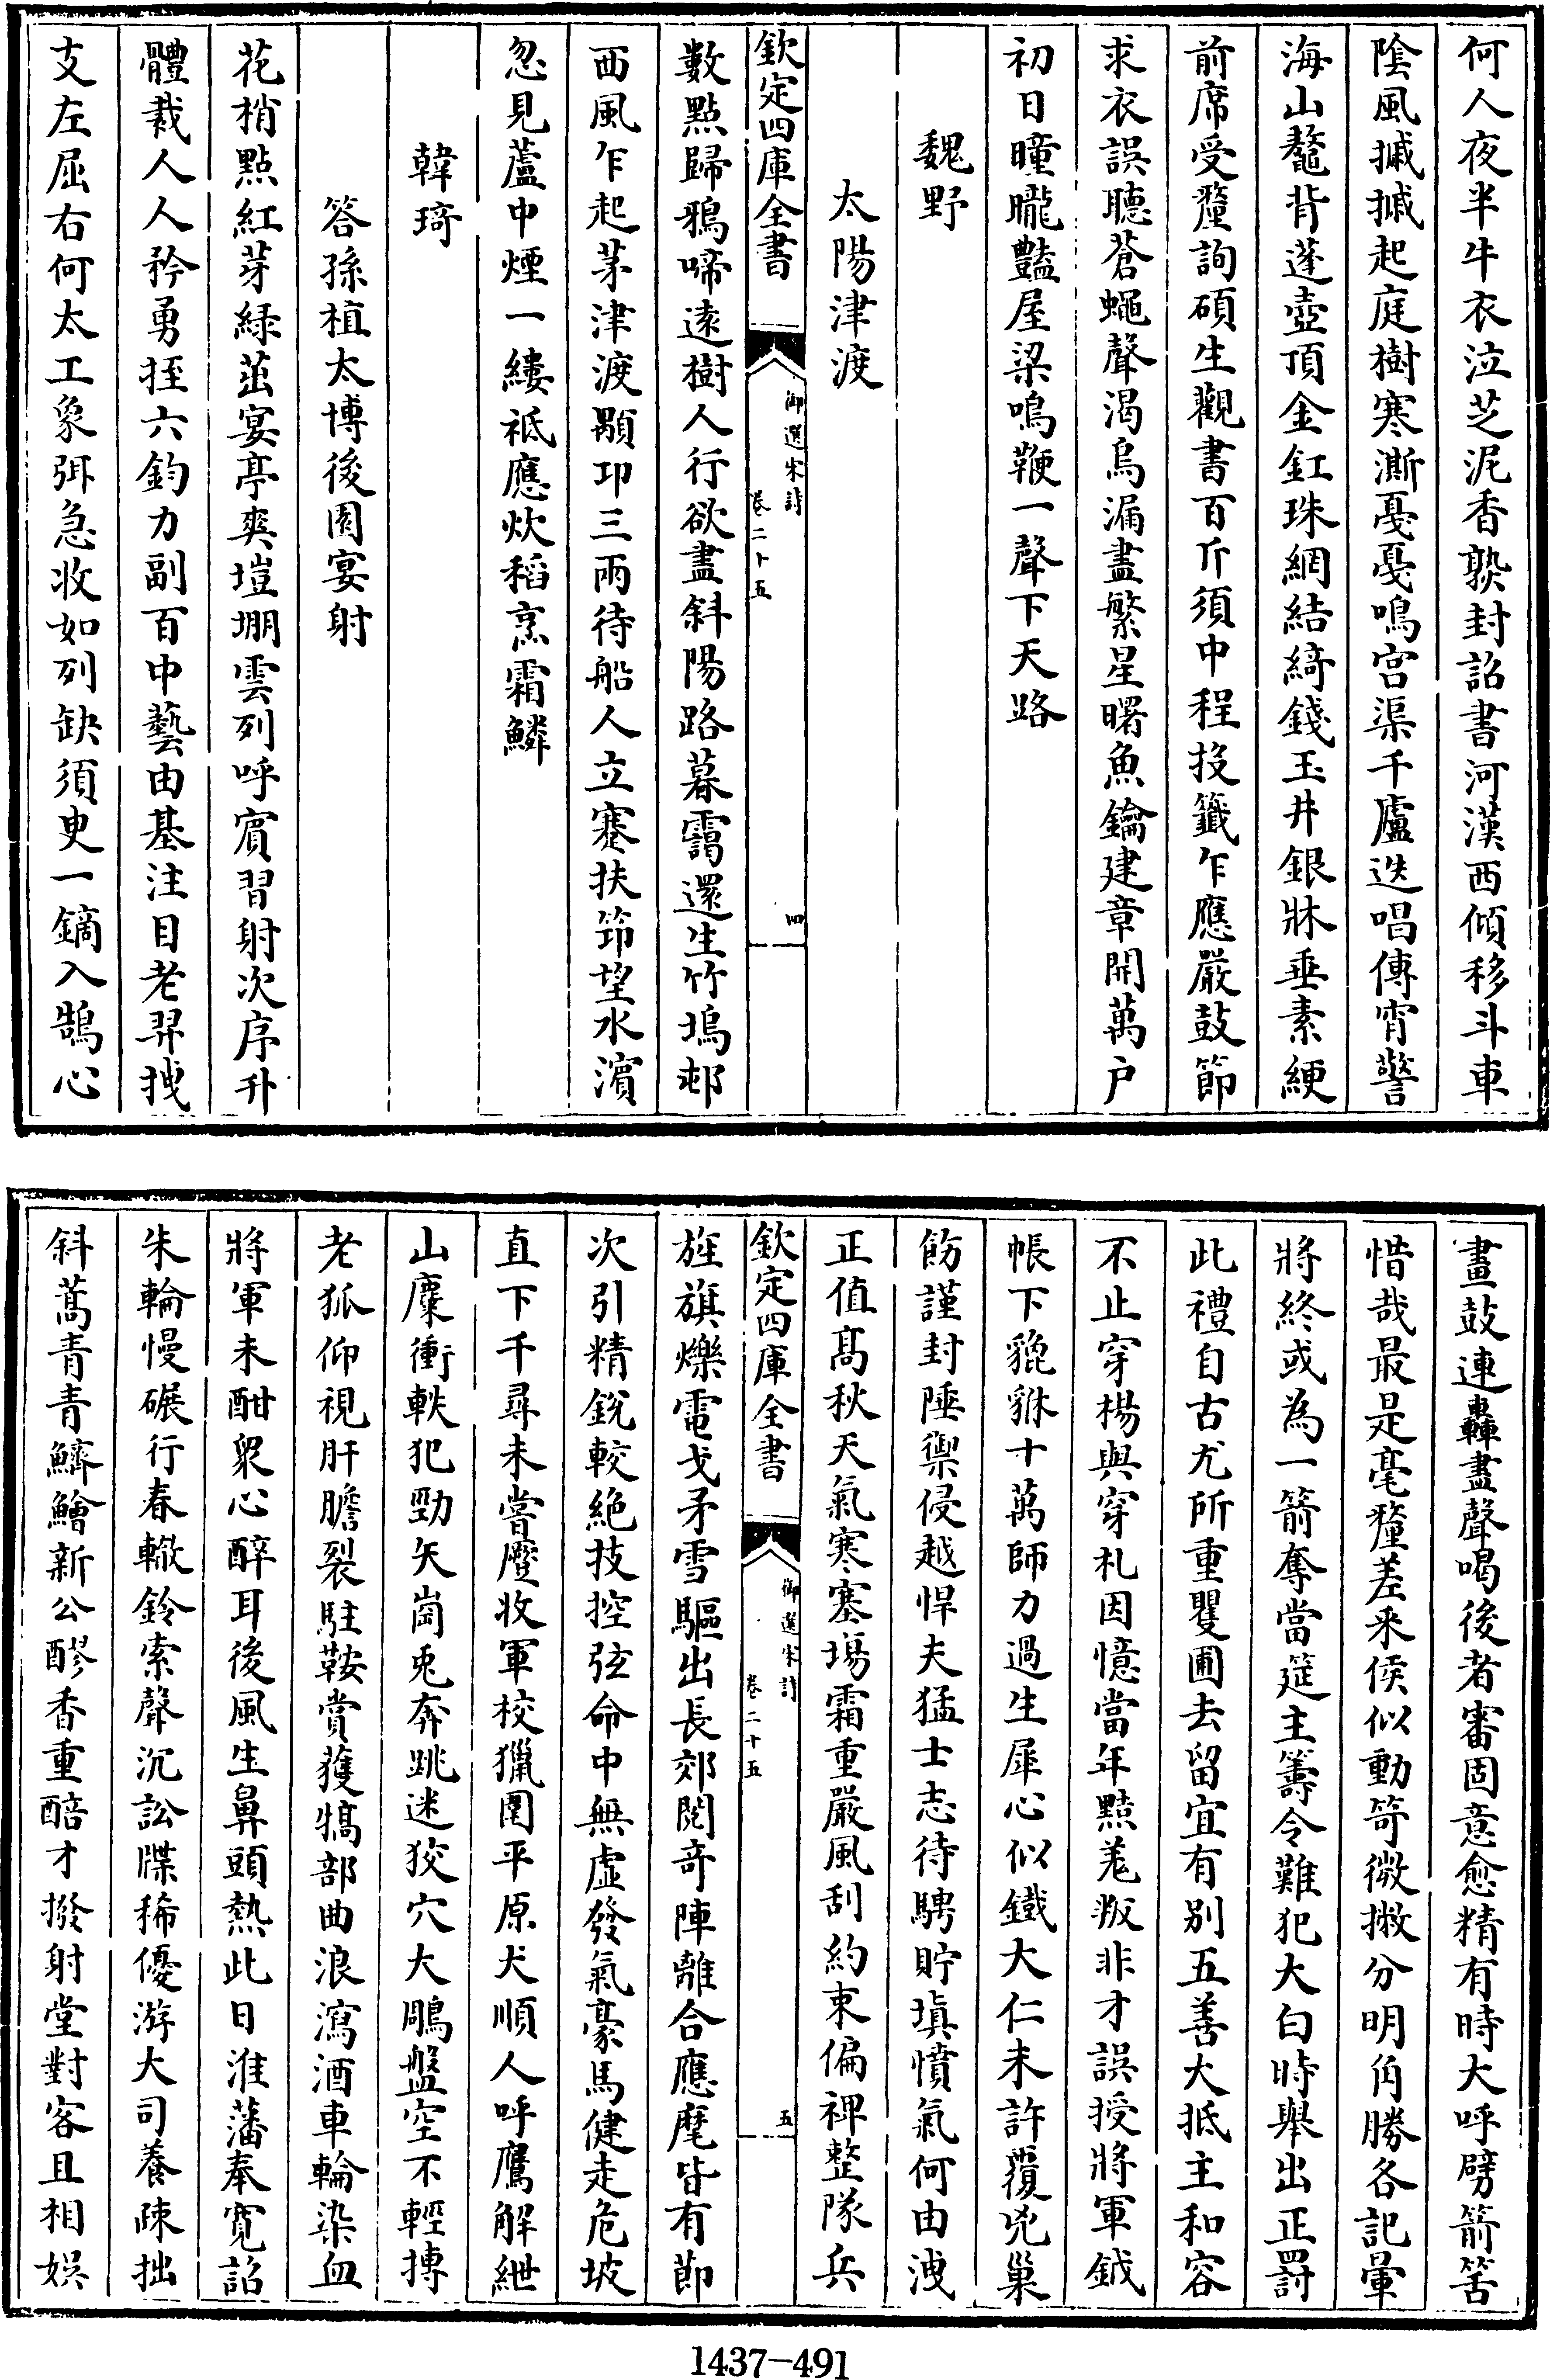 何人夜半牛衣泣芝泥香熟封詔書河漢西傾移斗車
陰風摵摵起庭樹寒澌戞戞鳴宫渠千廬迭唱傳宵警
海山鼇背蓬壺頂金釭珠網結綺錢玉井銀牀垂素綆
前席受釐詢碩生觀書百斤須中程投籤乍應嚴鼓節
求衣誤聽蒼蠅聲渴烏漏盡繁星曙魚鑰建章開萬户
初日曈曨豔屋梁鳴鞭一聲下天路
魏野
太陽津渡
欽定四庫全書
御選宋詩
卷二十五
四
數點歸鴉啼遠樹人行欲盡斜陽路暮靄還生竹塢邨
西風乍起茅津渡顒卬三兩待船人立蹇扶筇望水濱
忽見蘆中煙一縷祗應炊稻烹霜鱗
韓琦
答孫植太博後園宴射
花梢點紅芽綠茁宴亭爽塏堋雲列呼賓習射次序升
體裁人人矜勇挃六鈞力副百中藝由基注目老羿拽
支左屈右何太工象弭急收如列缺須臾一鏑入鵠心
畫鼓連轟盡聲喝後者審固意愈精有時大呼劈箭筈
惜哉最是毫釐差采侯似動笴微撇分明角勝各記暈
將終或為一箭奪當筵主籌令難犯大白時舉出正罰
此禮自古尤所重矍圃去留宜有别五善大抵主和容
不止穿楊與穿札因憶當年黠羌叛非才誤授將軍鉞
帳下貔貅十萬師力過生犀心似鐵大仁未許覆兇巢
飭謹封陲禦侵越悍夫猛士志待騁貯填憤氣何由洩
正值髙秋天氣寒塞場霜重嚴風刮約束偏裨整隊兵
欽定四庫全書
御選宋詩
卷二十五
五
旌旗爍電戈矛雪驅出長郊閱奇陣離合應麾皆有節
次引精銳較絶技控弦命中無虛發氣豪馬健走危坡
直下千尋未嘗蹷收軍校獵圍平原犬順人呼鷹解紲
山麋衝軼犯勁矢崗兎奔跳迷狡穴大鵰盤空不輕摶
老狐仰視肝膽裂駐鞍賞獲犒部曲浪瀉酒車輪染血
將軍未酣衆心醉耳後風生鼻頭熱此日淮藩奉寛詔
朱輪慢碾行春轍鈴索聲沉訟牒稀優游大司養疎拙
斜蒿青青鱭鱠新公醪香重醅才撥射堂對客且相娱
1437-491